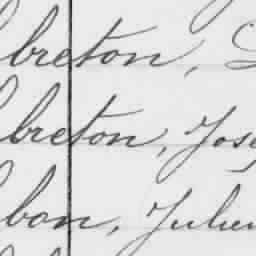 breton,
breton, Jose
bon, Julien